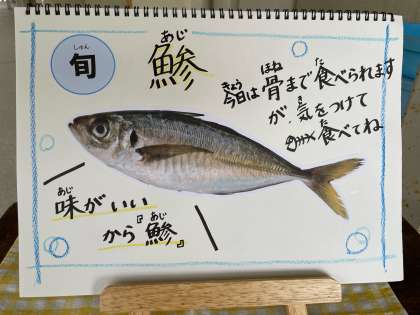 しゅん
旬
あじ
鯵
きょう ほね た
今日は骨まで食べられます
き
が 気をつけて
た
食べてね
あじ
味がいい
あじ
から『鯵』